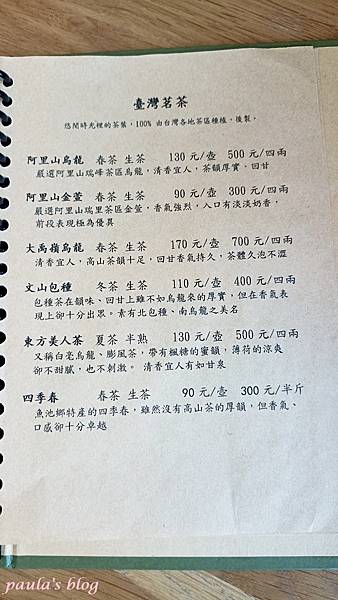 臺灣茗茶
悠閒時光裡的茶葉，100% 由台灣各地茶區種植、後製。
阿里山烏龍 春茶 生茶 130 元/壺 500 元/四兩
嚴選阿里山瑞峰茶區烏龍，清香宜人，茶韻厚實、回甘
阿里山金萱 春茶 生茶 90 元/壺 300 元/四兩
嚴選阿里山瑞里茶區金萱，香氣強烈，入口有淡淡奶香，
前段表現極為優異
大禹嶺烏龍 春茶 生茶 170 元/壺 700 元/四兩
清香宜人，高山茶韻十足，回甘香氣持久，茶體久泡不澀
文山包種 冬茶 生茶 110 元/壺 400 元/四兩
包種茶在韻味、回甘上雖不如烏龍來的厚實，但在香氣表
現上卻十分出眾。素有北包種、南烏龍之美名
東方美人茶 夏茶 半熟 130 元/壺 500 元/四兩
又稱白毫烏龍、膨風茶，帶有楓糖的蜜韻，薄荷的涼爽
卻不甜膩，也不刺激。 清香宜人有如甘泉
四季春 春茶 生茶 90 元/壺 300 元/半斤
魚池鄉特產的四季春，雖然沒有高山茶的厚韻，但香氣、
口感卻十分卓越
paula's blog